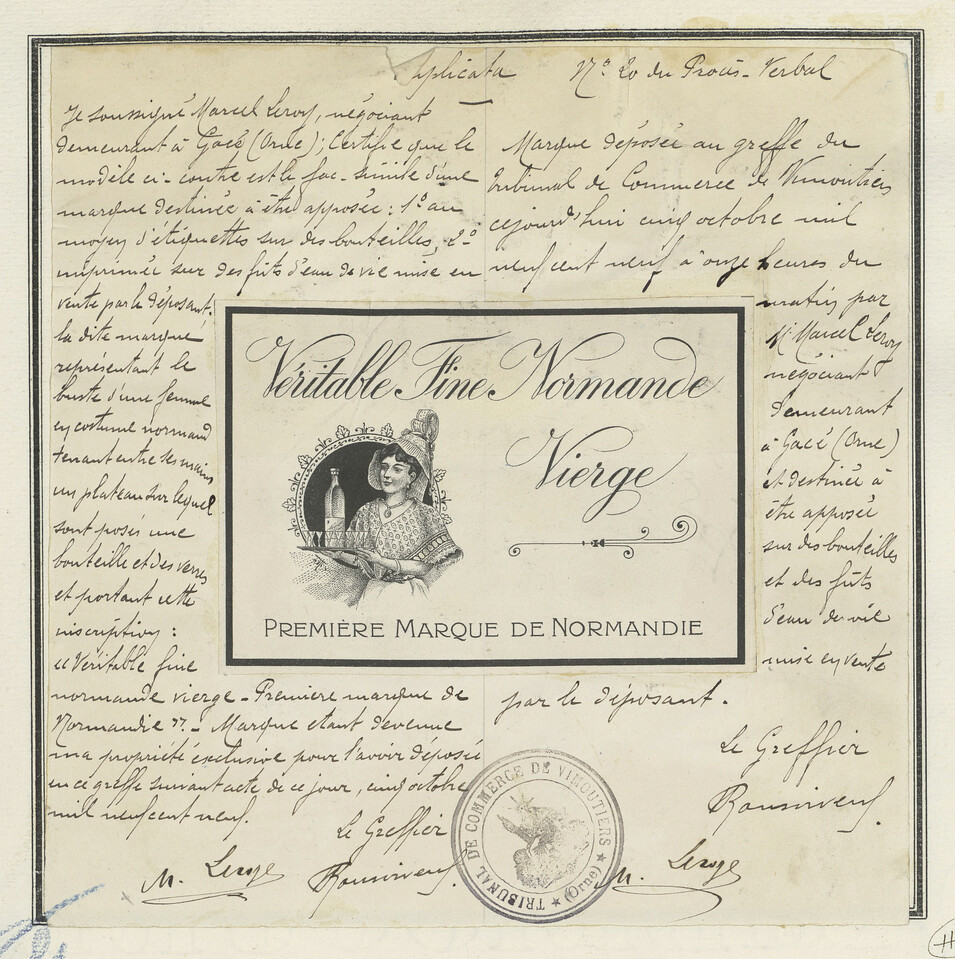 uplicata
Je soussigné Marcel Leroy, négociant
demeurant à Gacé (Orne); Certifie que le
modèle ci-contre est le fac-simile d'une
marque destinée à être apposée: 1º au
moyen d'étiquettes sur des bouteilles, 2º
imprimée sur des fûts d'eau de vie mise en
vente par le déposant.
la dite marque
représentant le
buste d'une femme
en costume normand
tenant entre les mains
un plateau sur lequel
sont posés une
bouteille et des verres
et portant cette
inscription:
"Véritable fine
normande vierge - Première marque de
Normandie". - Marque étant devenue
ma propriété exclusive pour l'avoir déposée
en ce greffe suivant acte de ce jour, cinq octobre
mil neuf cent neuf.
Le Greffier
M. Leroy
Nº 20 du Procès-Verbal
Marque déposée au greffe du
Tribunal de Commerce de Vimoutiers
cejourd'hui cinq octobre mil
neuf cent neuf à onze heures du
matin par
Mr Marcel Leroy
négociant
demeurant
à Gacé (Orne)
et destinée à
être apposée
sur des bouteilles
et des fûts
d'eau de vie
mise en vente
par le déposant.
Le Greffier
M. Leroy
Véritable Fine Normande
Vierge
PREMIÈRE MARQUE DE NORMANDIE
TRIBUNAL DE COMMERCE DE VIMOUTIERS
(Orne)